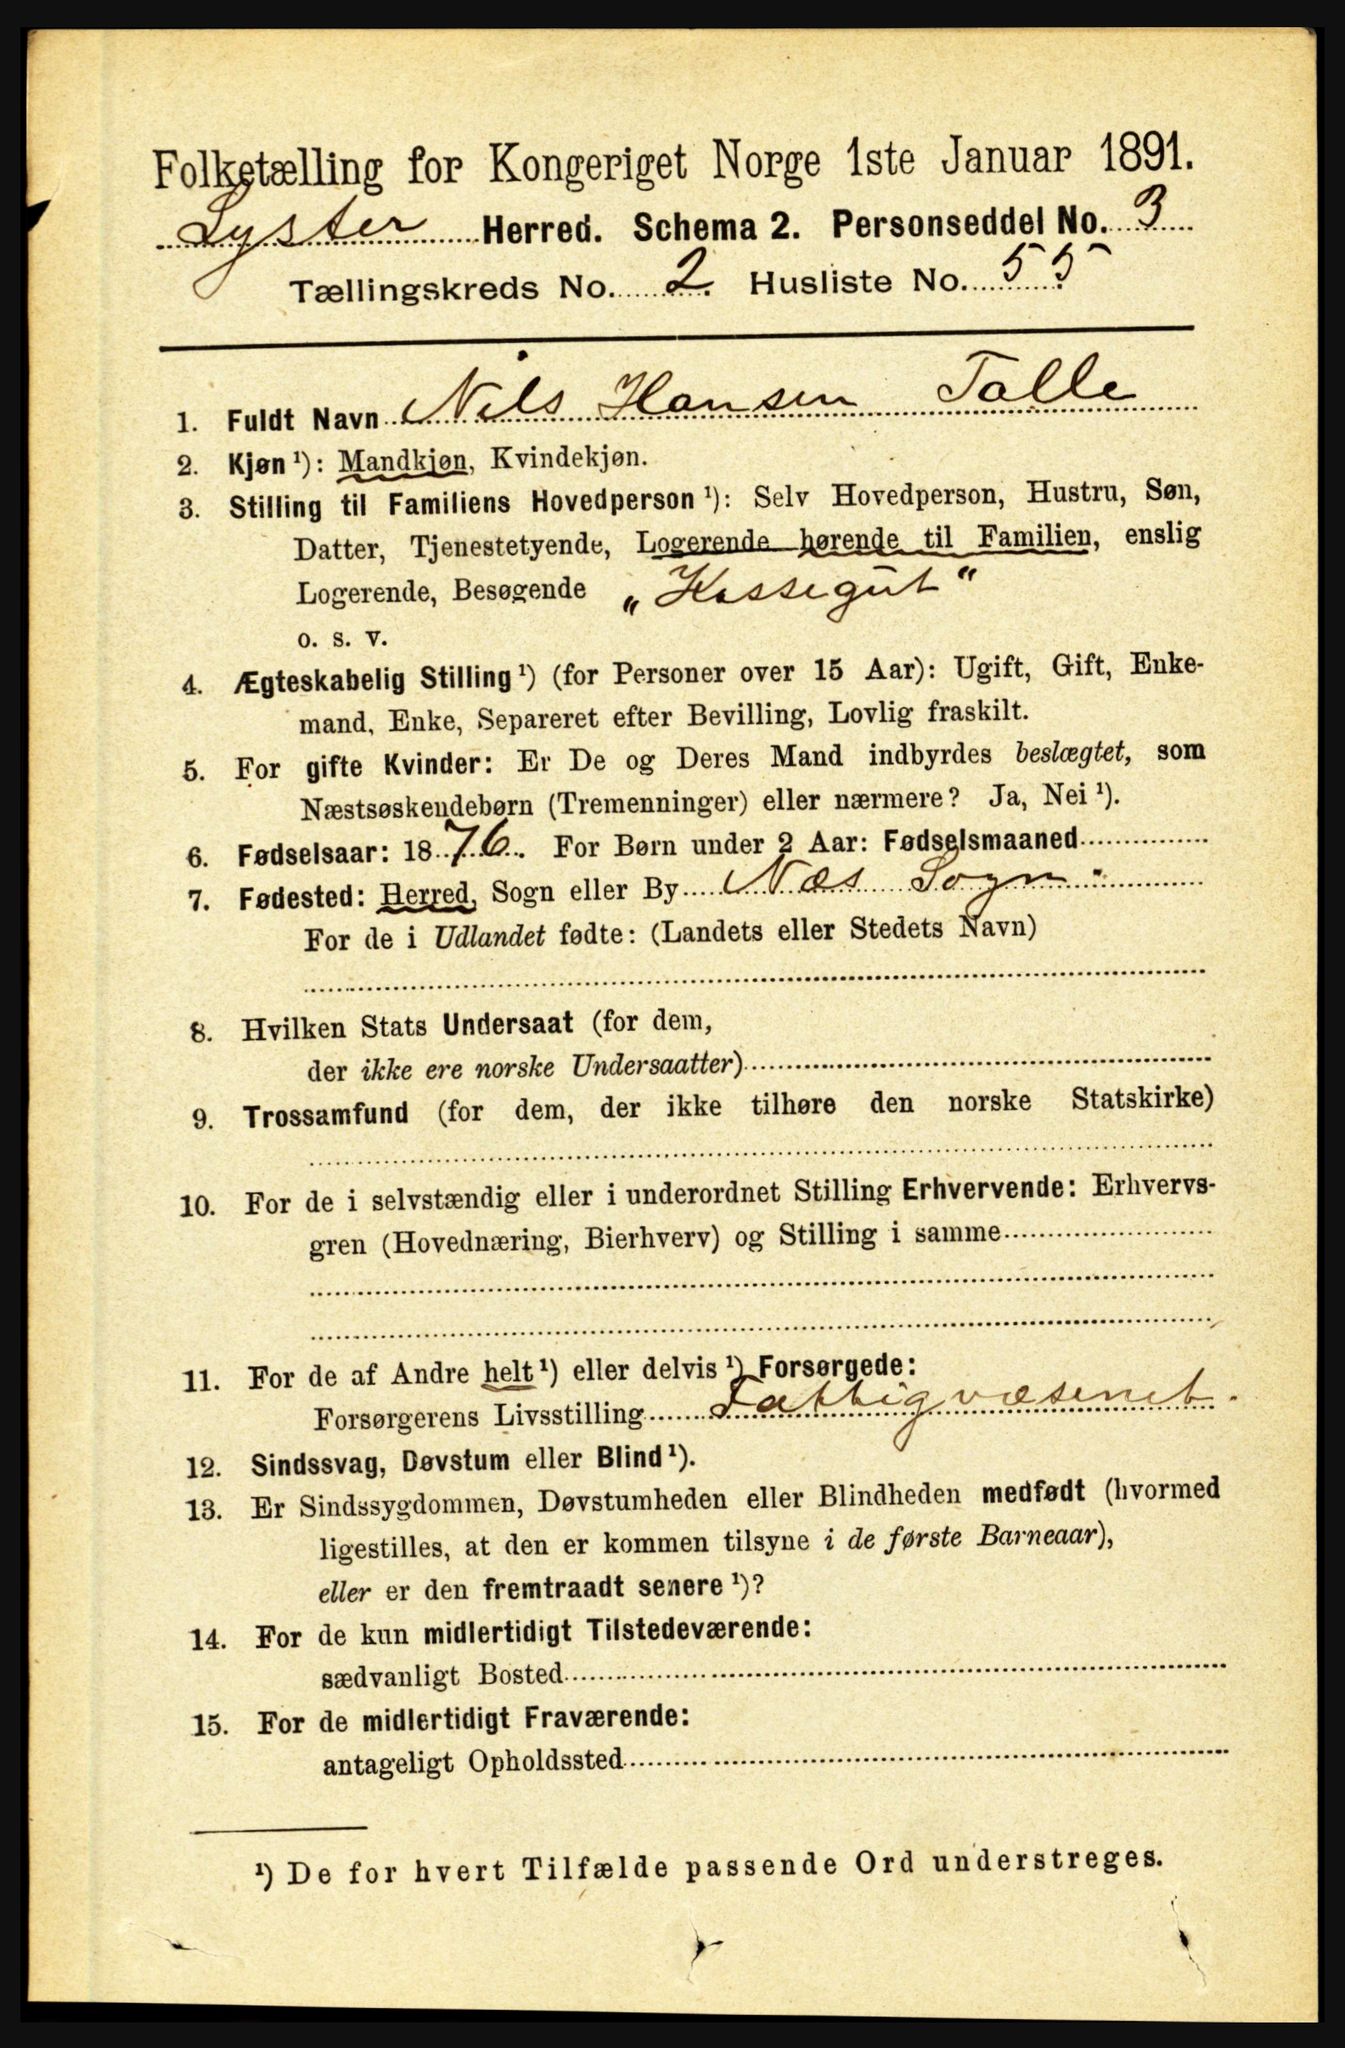 Folketælling for Kongeriget Norge 1ste Januar 1891.
Lyster Herred. Schema 2. Personseddel No. 3
Tællingskreds No. 2. Husliste No. 55
1. Fuldt Navn Nils Hansen Talle
2. Kjøn ¹): Mandkjøn, Kvindekjøn.
3. Stilling til Familiens Hovedperson ¹): Selv Hovedperson, Hustru, Søn,
Datter, Tjenestetyende, Logerende hørende til Familien, enslig
Logerende, Besøgende „Kassegut“
o. s. v.
4. Ægteskabelig Stilling ¹) (for Personer over 15 Aar): Ugift, Gift, Enke-
mand, Enke, Separeret efter Bevilling, Lovlig fraskilt.
5. For gifte Kvinder: Er De og Deres Mand indbyrdes beslægtet, som
Næstsøskendebørn (Tremenninger) eller nærmere? Ja, Nei ¹).
6. Fødselsaar: 1876. For Børn under 2 Aar: Fødselsmaaned
7. Fødested: Herred, Sogn eller By Næs Sogn.
For de i Udlandet fødte: (Landets eller Stedets Navn)
8. Hvilken Stats Undersaat (for dem,
der ikke ere norske Undersaatter)
9. Trossamfund (for dem, der ikke tilhøre den norske Statskirke)
10. For de i selvstændig eller i underordnet Stilling Erhvervende: Erhvervs-
gren (Hovednæring, Bierhverv) og Stilling i samme
11. For de af Andre helt ¹) eller delvis ¹) Forsørgede:
Forsørgerens Livsstilling Fattigvæsenet.
12. Sindssvag, Døvstum eller Blind ¹).
13. Er Sindssygdommen, Døvstumheden eller Blindheden medfødt (hvormed
ligestilles, at den er kommen tilsyne i de første Barneaar),
eller er den fremtraadt senere ¹)?
14. For de kun midlertidigt Tilstedeværende:
sædvanligt Bosted
15. For de midlertidigt Fraværende:
antageligt Opholdssted
¹) De for hvert Tilfælde passende Ord understreges.